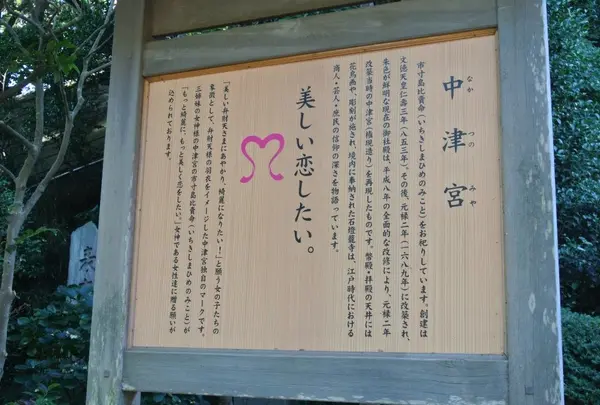 中津宮
なか つの みや
市寸島比賣命（いちきしまひめのみこと）をお祀りしています。創建は
文徳天皇仁壽三年（八五三年）。その後、元禄二年（一六八九年）に改築され、
朱色が鮮明な現在の御社殿は、平成八年の全面的な改修により、元禄二年
改築当時の中津宮（権現造り）を再現したものです。幣殿・拝殿の天井には
花鳥画や、彫刻が施され、境内に奉納された石燈籠等は、江戸時代における
商人・芸人・庶民の信仰の深さを物語っています。
美しい恋したい。
「美しい弁財天さまにあやかり、綺麗になりたい！」と願う女の子たちの
象徴として、弁財天様の羽衣をイメージした中津宮独自のマークです。
三姉妹の女神様の中津宮の市寸島比賣命（いちきしまひめのみこと）が
「もっと綺麗に、もっと美しく恋をしたい。」女神である女性達に贈る願いが
込められております。